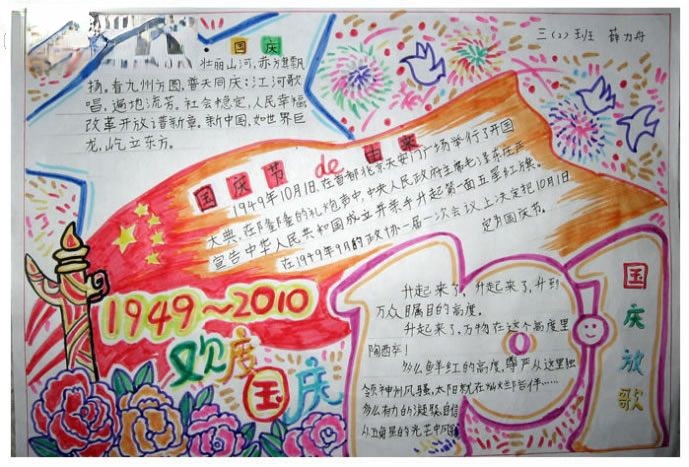 三(2)班 薛力舟
国庆
壮丽山河,赤旗飘
扬。看九州方圆,普天同庆:江河歌
唱,遍地流芳。社会稳定,人民幸福
改革开放谱新章。新中国,如世界巨
龙,屹立东方。
国庆节de由来
1949年10月1日,在首都北京天安门广场举行了开国
大典,在隆隆的礼炮声中,中央人民政府主席毛泽东庄严
宣告中华人民共和国成立并亲手升起第一面五星红旗。
在1949年9月的政协一届一次会议上决定把10月1日
定为国庆节。
1949~2010
欢度
国庆
101
国庆放歌
升起来了,升起来了,升到
万众瞩目的高度。
升起来了,万物在这个高度里
陶醉!
多么鲜红的高度,尊严从这里独
领神州风骚,太阳就在灿烂部位……
多么有力的凝聚,自信
从五角星的光芒中